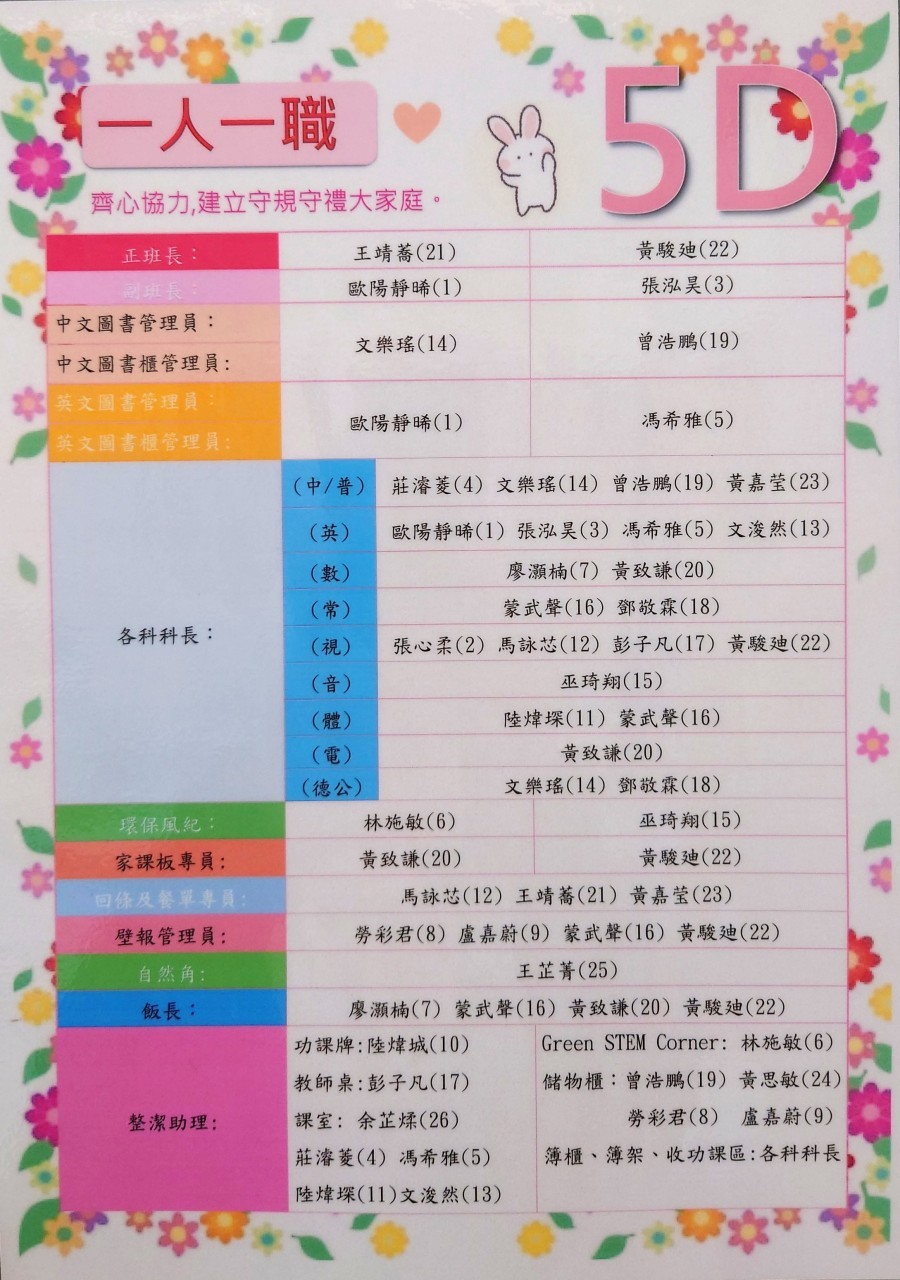 一人一職
5D
齊心協力,建立守規守禮大家庭。
正班長： 王靖蕎(21) 黃駿廸(22)
副班長： 歐陽靜晞(1) 張泓昊(3)
中文圖書管理員：
中文圖書櫃管理員:
文樂瑤(14) 曾浩鵬(19)
英文圖書管理員：
英文圖書櫃管理員:
歐陽靜晞(1) 馮希雅(5)
各科科長：
(中/普) 莊濬菱(4) 文樂瑤(14) 曾浩鵬(19) 黃嘉莹(23)
(英) 歐陽靜晞(1) 張泓昊(3) 馮希雅(5) 文浚然(13)
(數) 廖灝楠(7) 黃致謙(20)
(常) 蒙武聲(16) 鄧敬霖(18)
(視) 張心柔(2) 馬詠芯(12) 彭子凡(17) 黃駿廸(22)
(音) 巫琦翔(15)
(體) 陸煒琛(11) 蒙武聲(16)
(電) 黃致謙(20)
(德公) 文樂瑤(14) 鄧敬霖(18)
環保風紀： 林施敏(6) 巫琦翔(15)
家課板專員: 黃致謙(20) 黃駿廸(22)
回條及餐單專員: 馬詠芯(12) 王靖蕎(21) 黃嘉莹(23)
壁報管理員: 勞彩君(8) 盧嘉蔚(9) 蒙武聲(16) 黃駿廸(22)
自然角: 王芷菁(25)
飯長： 廖灝楠(7) 蒙武聲(16) 黃致謙(20) 黃駿廸(22)
整潔助理:
功課牌:陸煒城(10)
教師桌:彭子凡(17)
課室: 余芷煣(26)
莊濬菱(4) 馮希雅(5)
陸煒琛(11)文浚然(13)
Green STEM Corner: 林施敏(6)
儲物櫃：曾浩鵬(19) 黃思敏(24)
勞彩君(8) 盧嘉蔚(9)
簿櫃、簿架、收功課區:各科科長